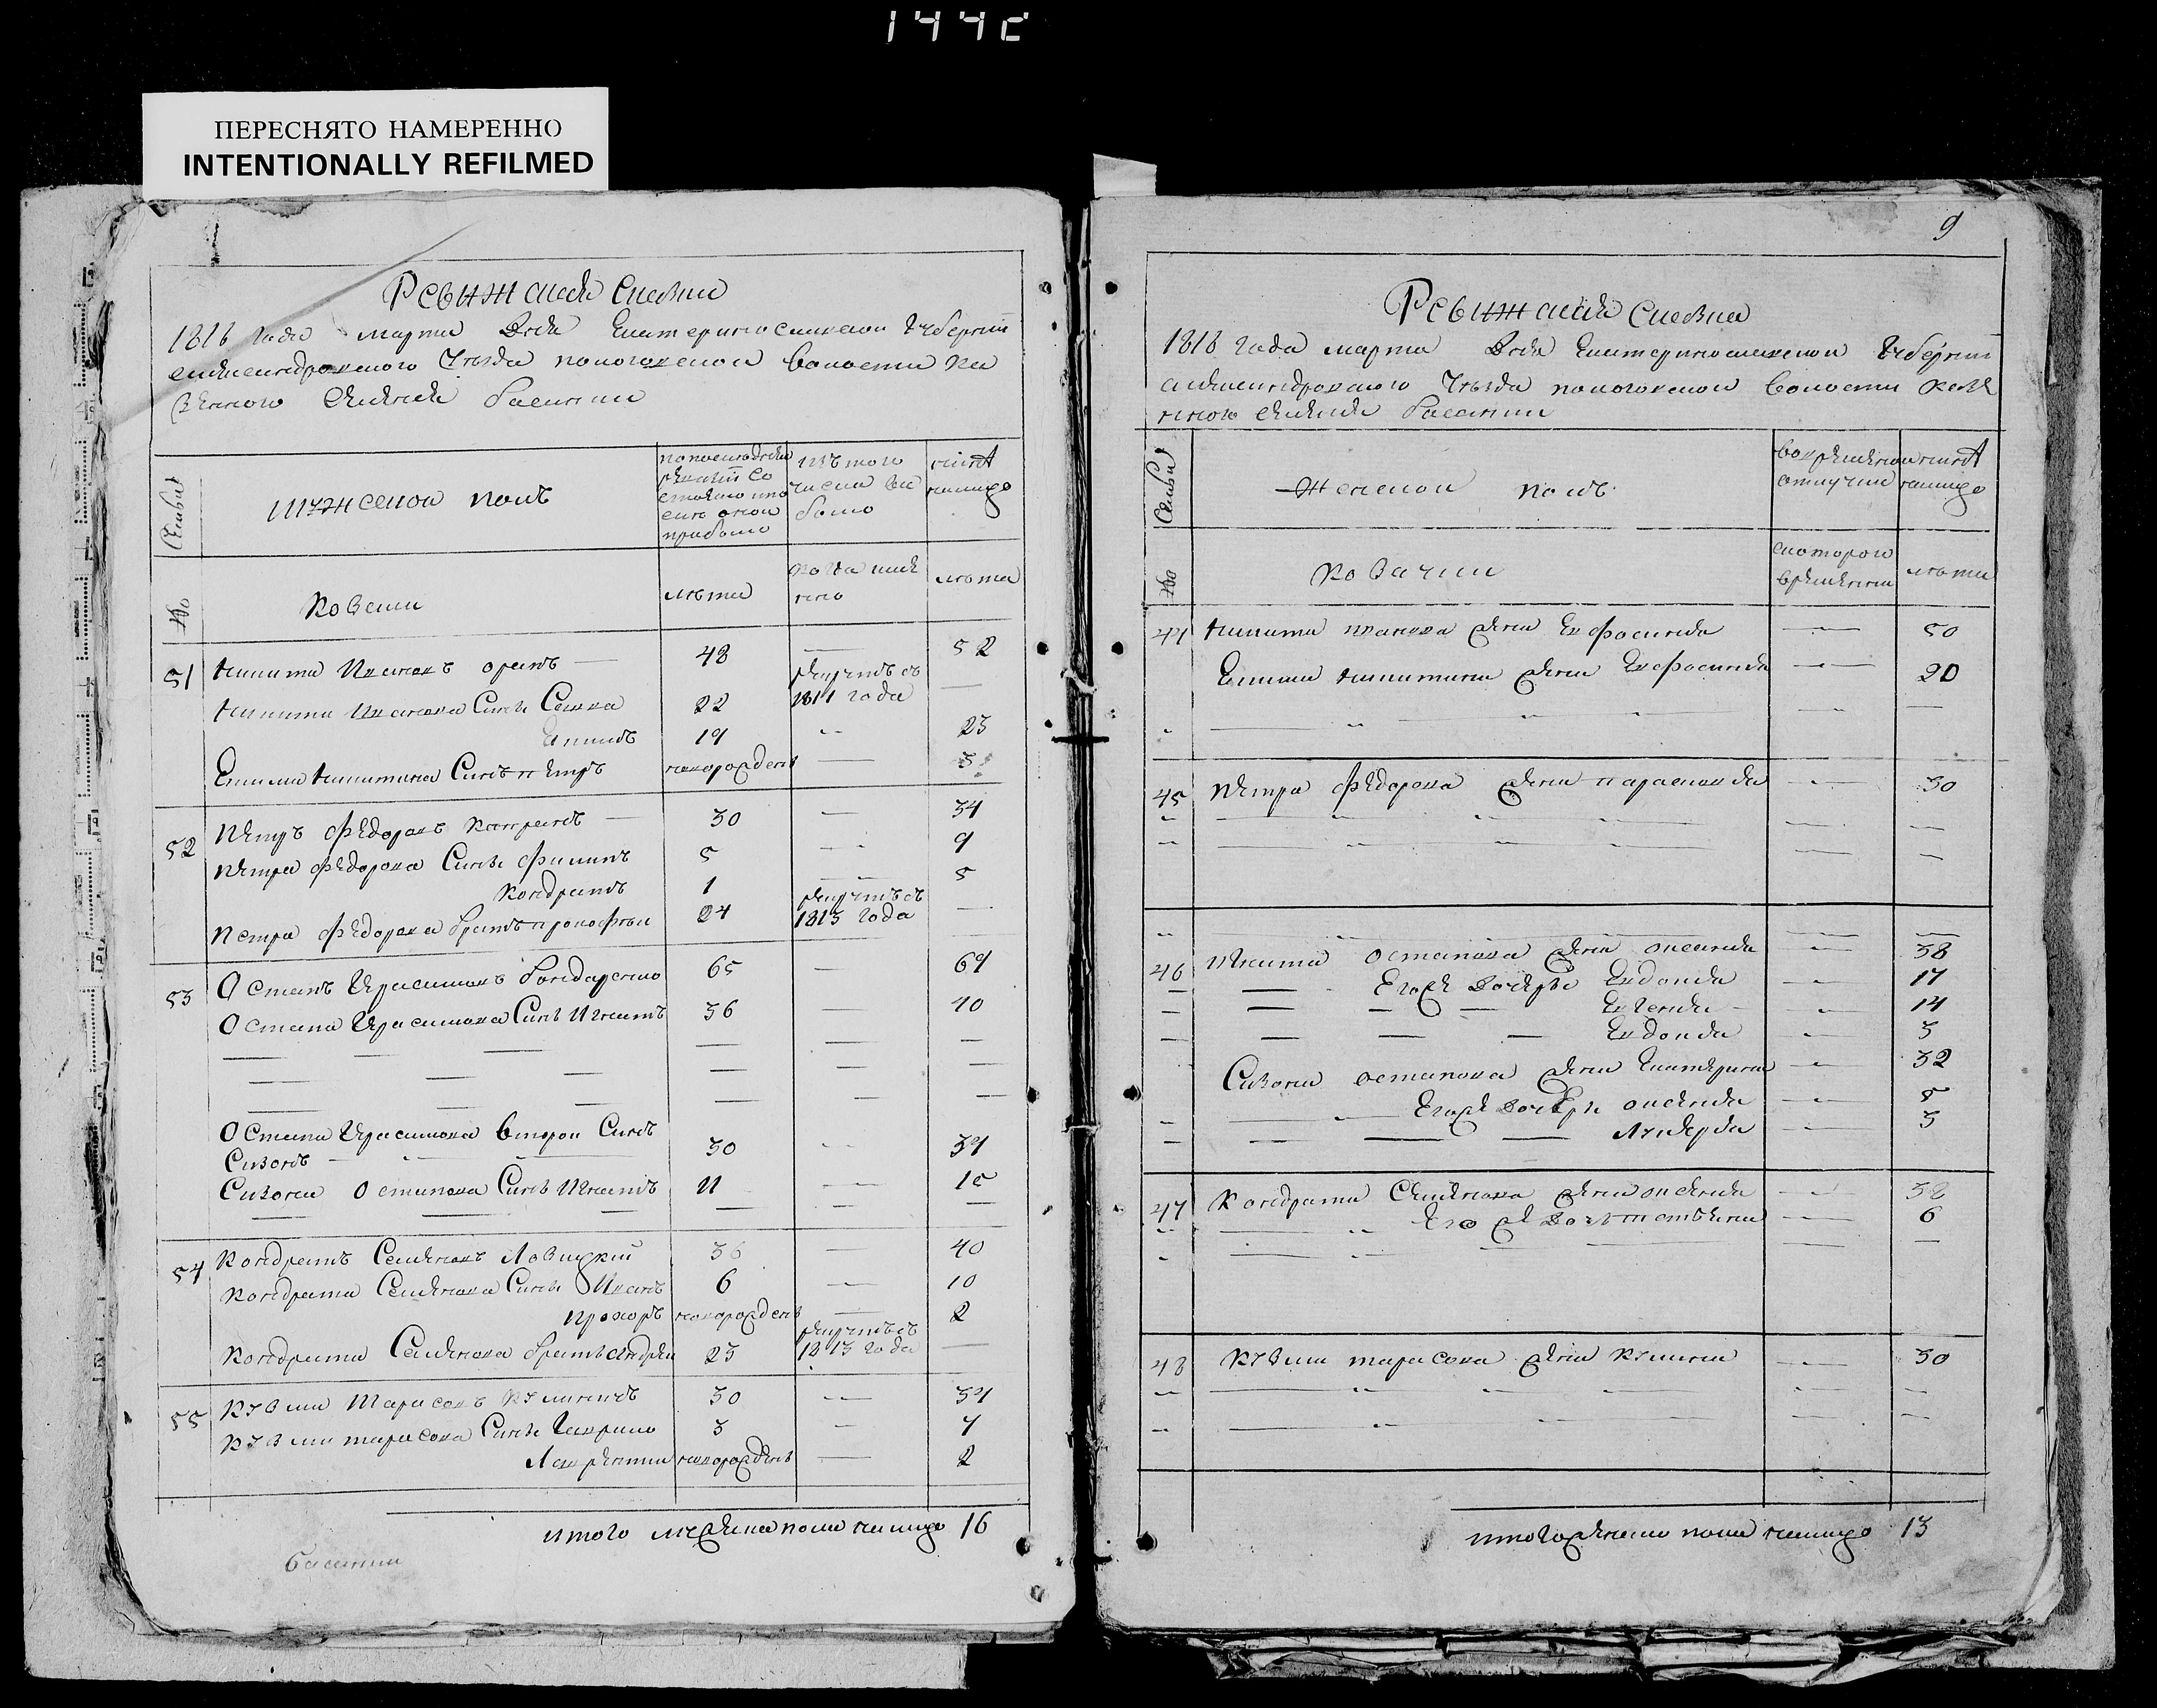 144c
ПЕРЕСНЯТО НАМЕРЕННО
INTENTIONALLY REFILMED
Ревижская Сказка
1816 года марта дня Екатеринославской Губернии
александровского Уезда пологовской волости Ка
зенного Селения Басани
Семьи
мужеской полъ
по последней
ревизии со
стояло и по
сле оной
прибыло
изъ того
числа вы
было
ныне
налицо
№
Козаки
лета
когда имен
но
лета
51
Никита Ивановъ
48
—
52
Никиты Иванова Сынъ Савва
22
рекрутъ съ
1811 года
—
Епимъ
19
23
Епима Никитина Сынъ петръ
новорожденъ
—
3
52
Петръ Федоровъ
30
—
34
Петра Федорова Сынъ Филипъ
5
9
Кондратъ
1
5
Петра Федорова братъ прокофеи
24
рекрутъ съ
1813 года
—
53
Остапъ Герасимовъ Бондаренко
65
—
69
Остапа Герасимова Сынъ Игнатъ
36
—
40
Остапа Герасимова второи Сынъ
Сизонъ
30
34
Сизона Остапова Сынъ Игнатъ
11
15
54
Кондратъ Семеновъ Лозицкий
36
40
Кондрата Семенова Сынъ Иванъ
6
—
10
прохоръ
новорожденъ
—
2
Кондрата Семенова братъ андреи
23
рекрутъ съ
1813 года
—
55
Кузма Тарасовъ
30
34
Кузмы тарасова Сынъ Гаврило
3
7
Лаврентии
новорожденъ
—
2
итого мужеска пола налицо 16
Басани
9
Ревижская Сказка
1816 года марта дня Екатеринославской Губернии
александровского Уезда пологовской волости Казе
нного Селения Басани
Семьи
Женской полъ
во временной
отлучке
ныне
налицо
№
Козачки
с которого
времени
лета
44
Никиты иванова жена Евфросиния
50
Епима никитина жена Евфросиния
20
45
Петра Федорова жена парасковия
30
46
Игната остапова жена
38
Егожъ дочери Евдокия
17
Евгения
14
Евдокия
3
Сизона остапова жена Екатерина
32
Егожъ дочери
8
Лукерья
3
47
Кондрата Семенова жена
6
48
Кузмы тарасова жена
30
итого женска пола налицо 13